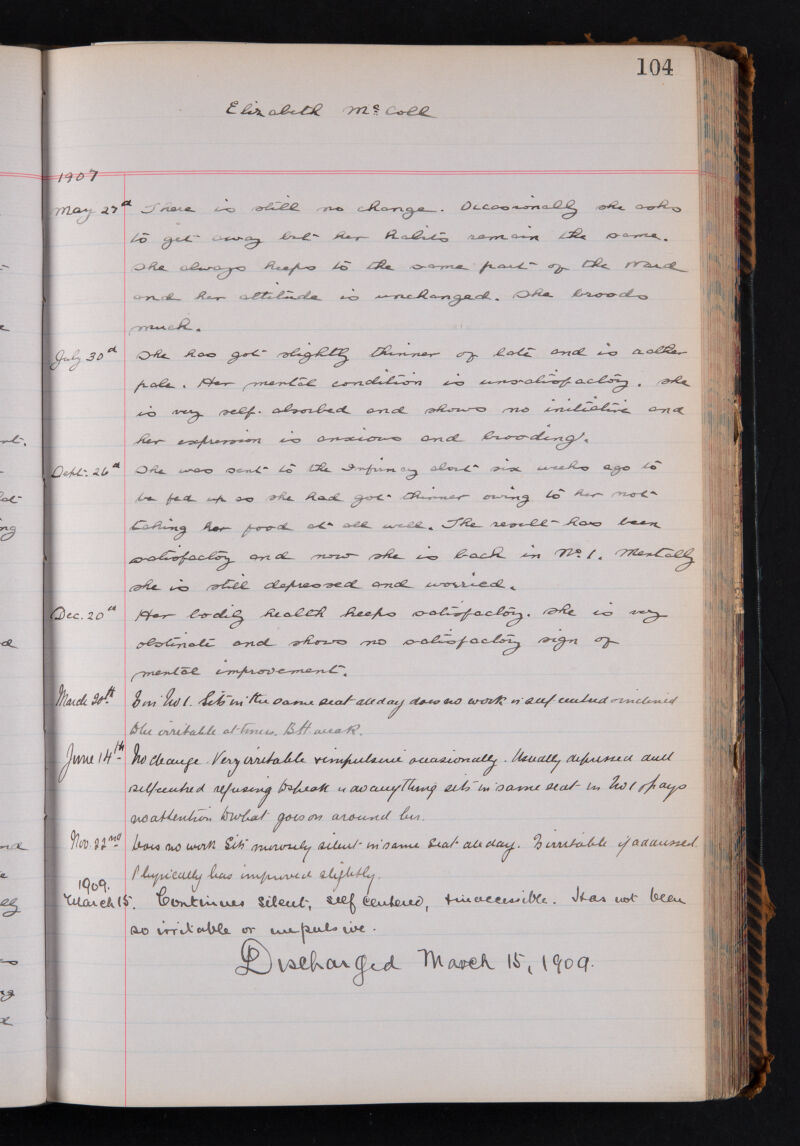 104
Elizabeth McColl
1907
May 27d There is still no change. Occasionally she asks
to get away but her habits remain the same.
She always keeps to the same part of the Ward
and her attitude is unchanged. She broods
much.
July 30d She has got slightly thinner of late and is rather
pale. Her mental condition is unsatisfactory. She
is very self-absorbed and shows no initiative and
her expression is anxious and brooding.
Sept. 26d She was sent to the Infirmary about six weeks ago to
be fed up as she had got thinner owing to her not
taking her food at all well. The result has been
satisfactory and now she is back in No. 1. Mentally
she is still depressed and worried.
Dec. 20d Her bodily health keeps satisfactory. She is very
obstinate and shows no satisfactory sign of
mental improvement.
March 20th Is in No 1. Sits in the same seat all day does no work is self centred & inclined
to be irritable at times. B.H. weak.
June 14th No change. Very irritable & impulsive occasionally. Usually depressed and
selfcentred refusing to speak or do anything sits in same seat in No 1 & pays
no attention to what goes on around her.
Nov. 22nd Does no work Sits morosely silent in same seat all day. Is irritable if addressed.
Physically has improved slightly.
1909.
March 15. Continues silent, self centered, & inaccessible. Has not been
so irritable or impulsive.
Discharged March 15, 1909.